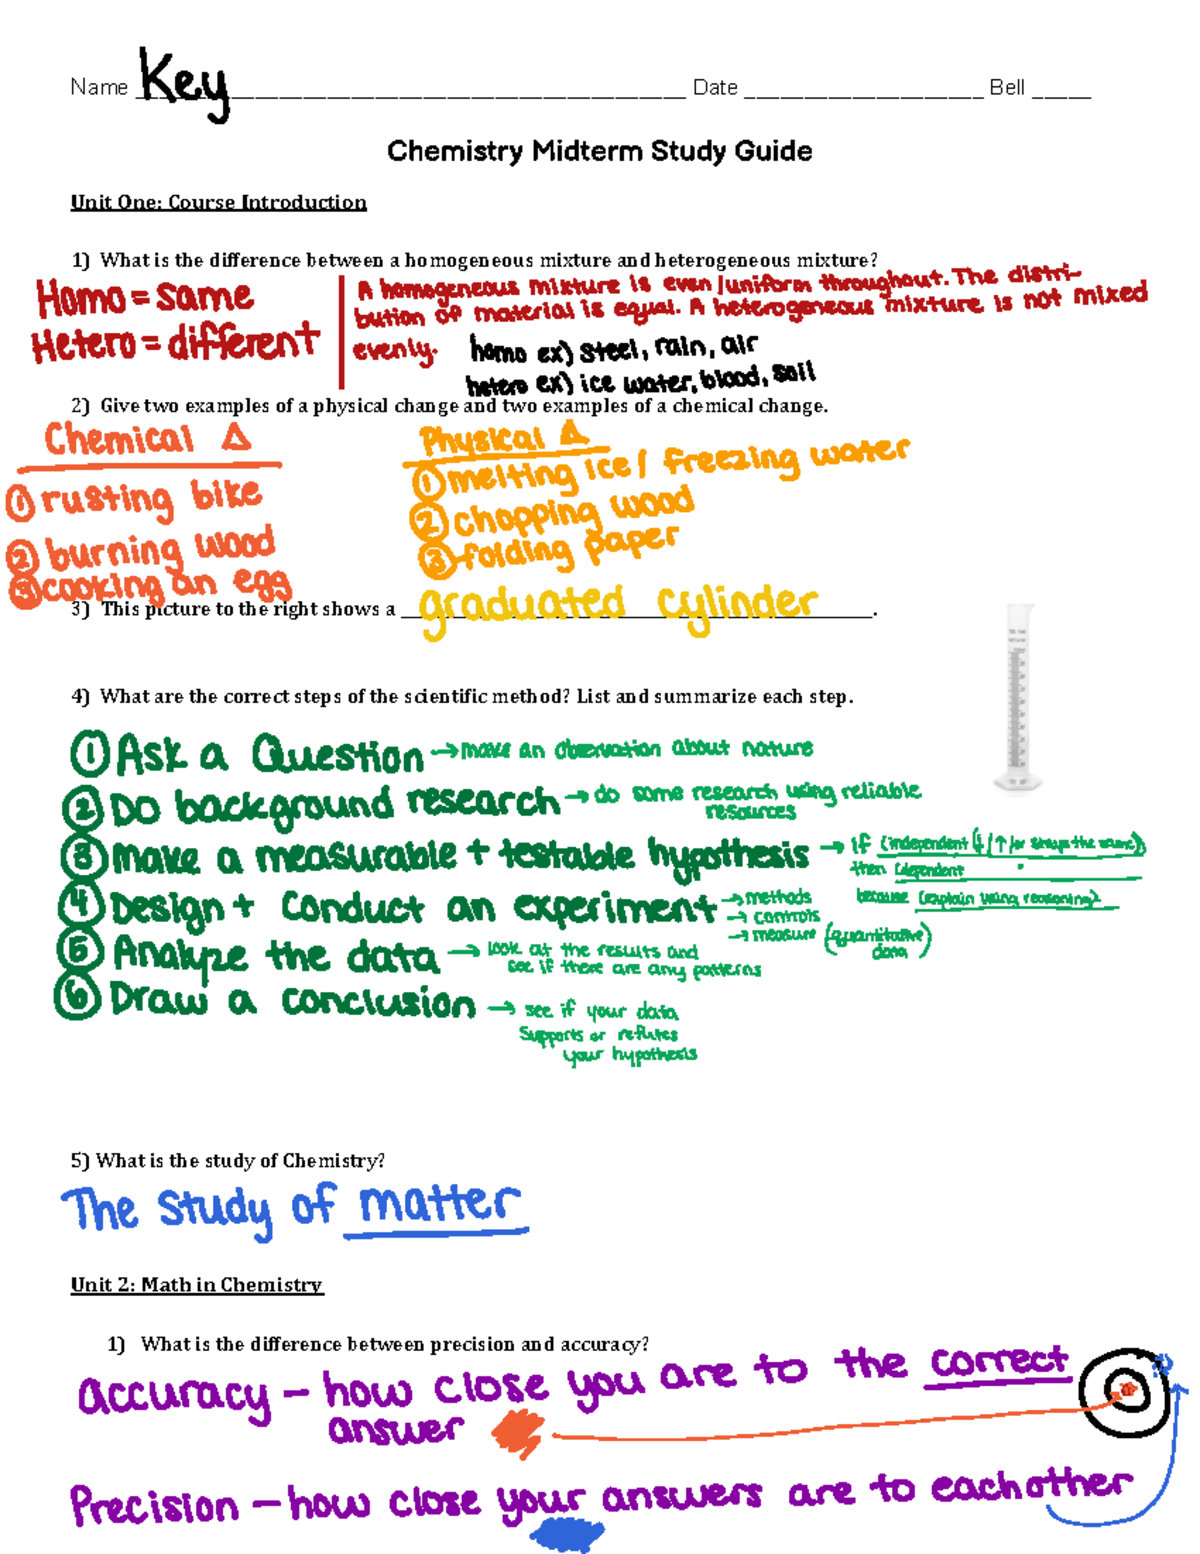 Name Key Date Bell
Chemistry Midterm Study Guide
Unit One: Course Introduction
1) What is the difference between a homogeneous mixture and heterogeneous mixture?
Homo = same
Hetero = different
A homogeneous mixture is even/uniform throughout. The distri-
bution of material is equal. A heterogeneous mixture is not mixed
evenly.
homo ex) steel, rain, air
hetero ex) ice water, blood, soil
2) Give two examples of a physical change and two examples of a chemical change.
Chemical Δ
① rusting bike
② burning wood
③ cooking an egg
Physical Δ
① melting ice / freezing water
② chopping wood
③ folding paper
3) This picture to the right shows a graduated cylinder.
4) What are the correct steps of the scientific method? List and summarize each step.
① Ask a Question → make an observation about nature
② Do background research → do some research using reliable
resources
③ make a measurable + testable hypothesis → if (independent (↓/↑/or stays the same))
then (dependent
because (explain using reasoning).
④ Design + Conduct an experiment → methods
→ controls
→ measure (quantitative)
data
⑤ Analyze the data → look at the results and
see if there are any patterns
⑥ Draw a conclusion → see if your data
supports or refutes
your hypothesis
5) What is the study of Chemistry?
The study of matter
Unit 2: Math in Chemistry
1) What is the difference between precision and accuracy?
Accuracy - how close you are to the correct
answer
Precision - how close your answers are to eachother